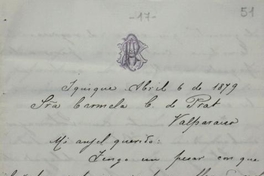 -17-
51
Iquique, Abril 6 de 1879
Sra Carmela C. de Prat
Valparaiso
Mi anjel querido:
Tengo un pesar en que